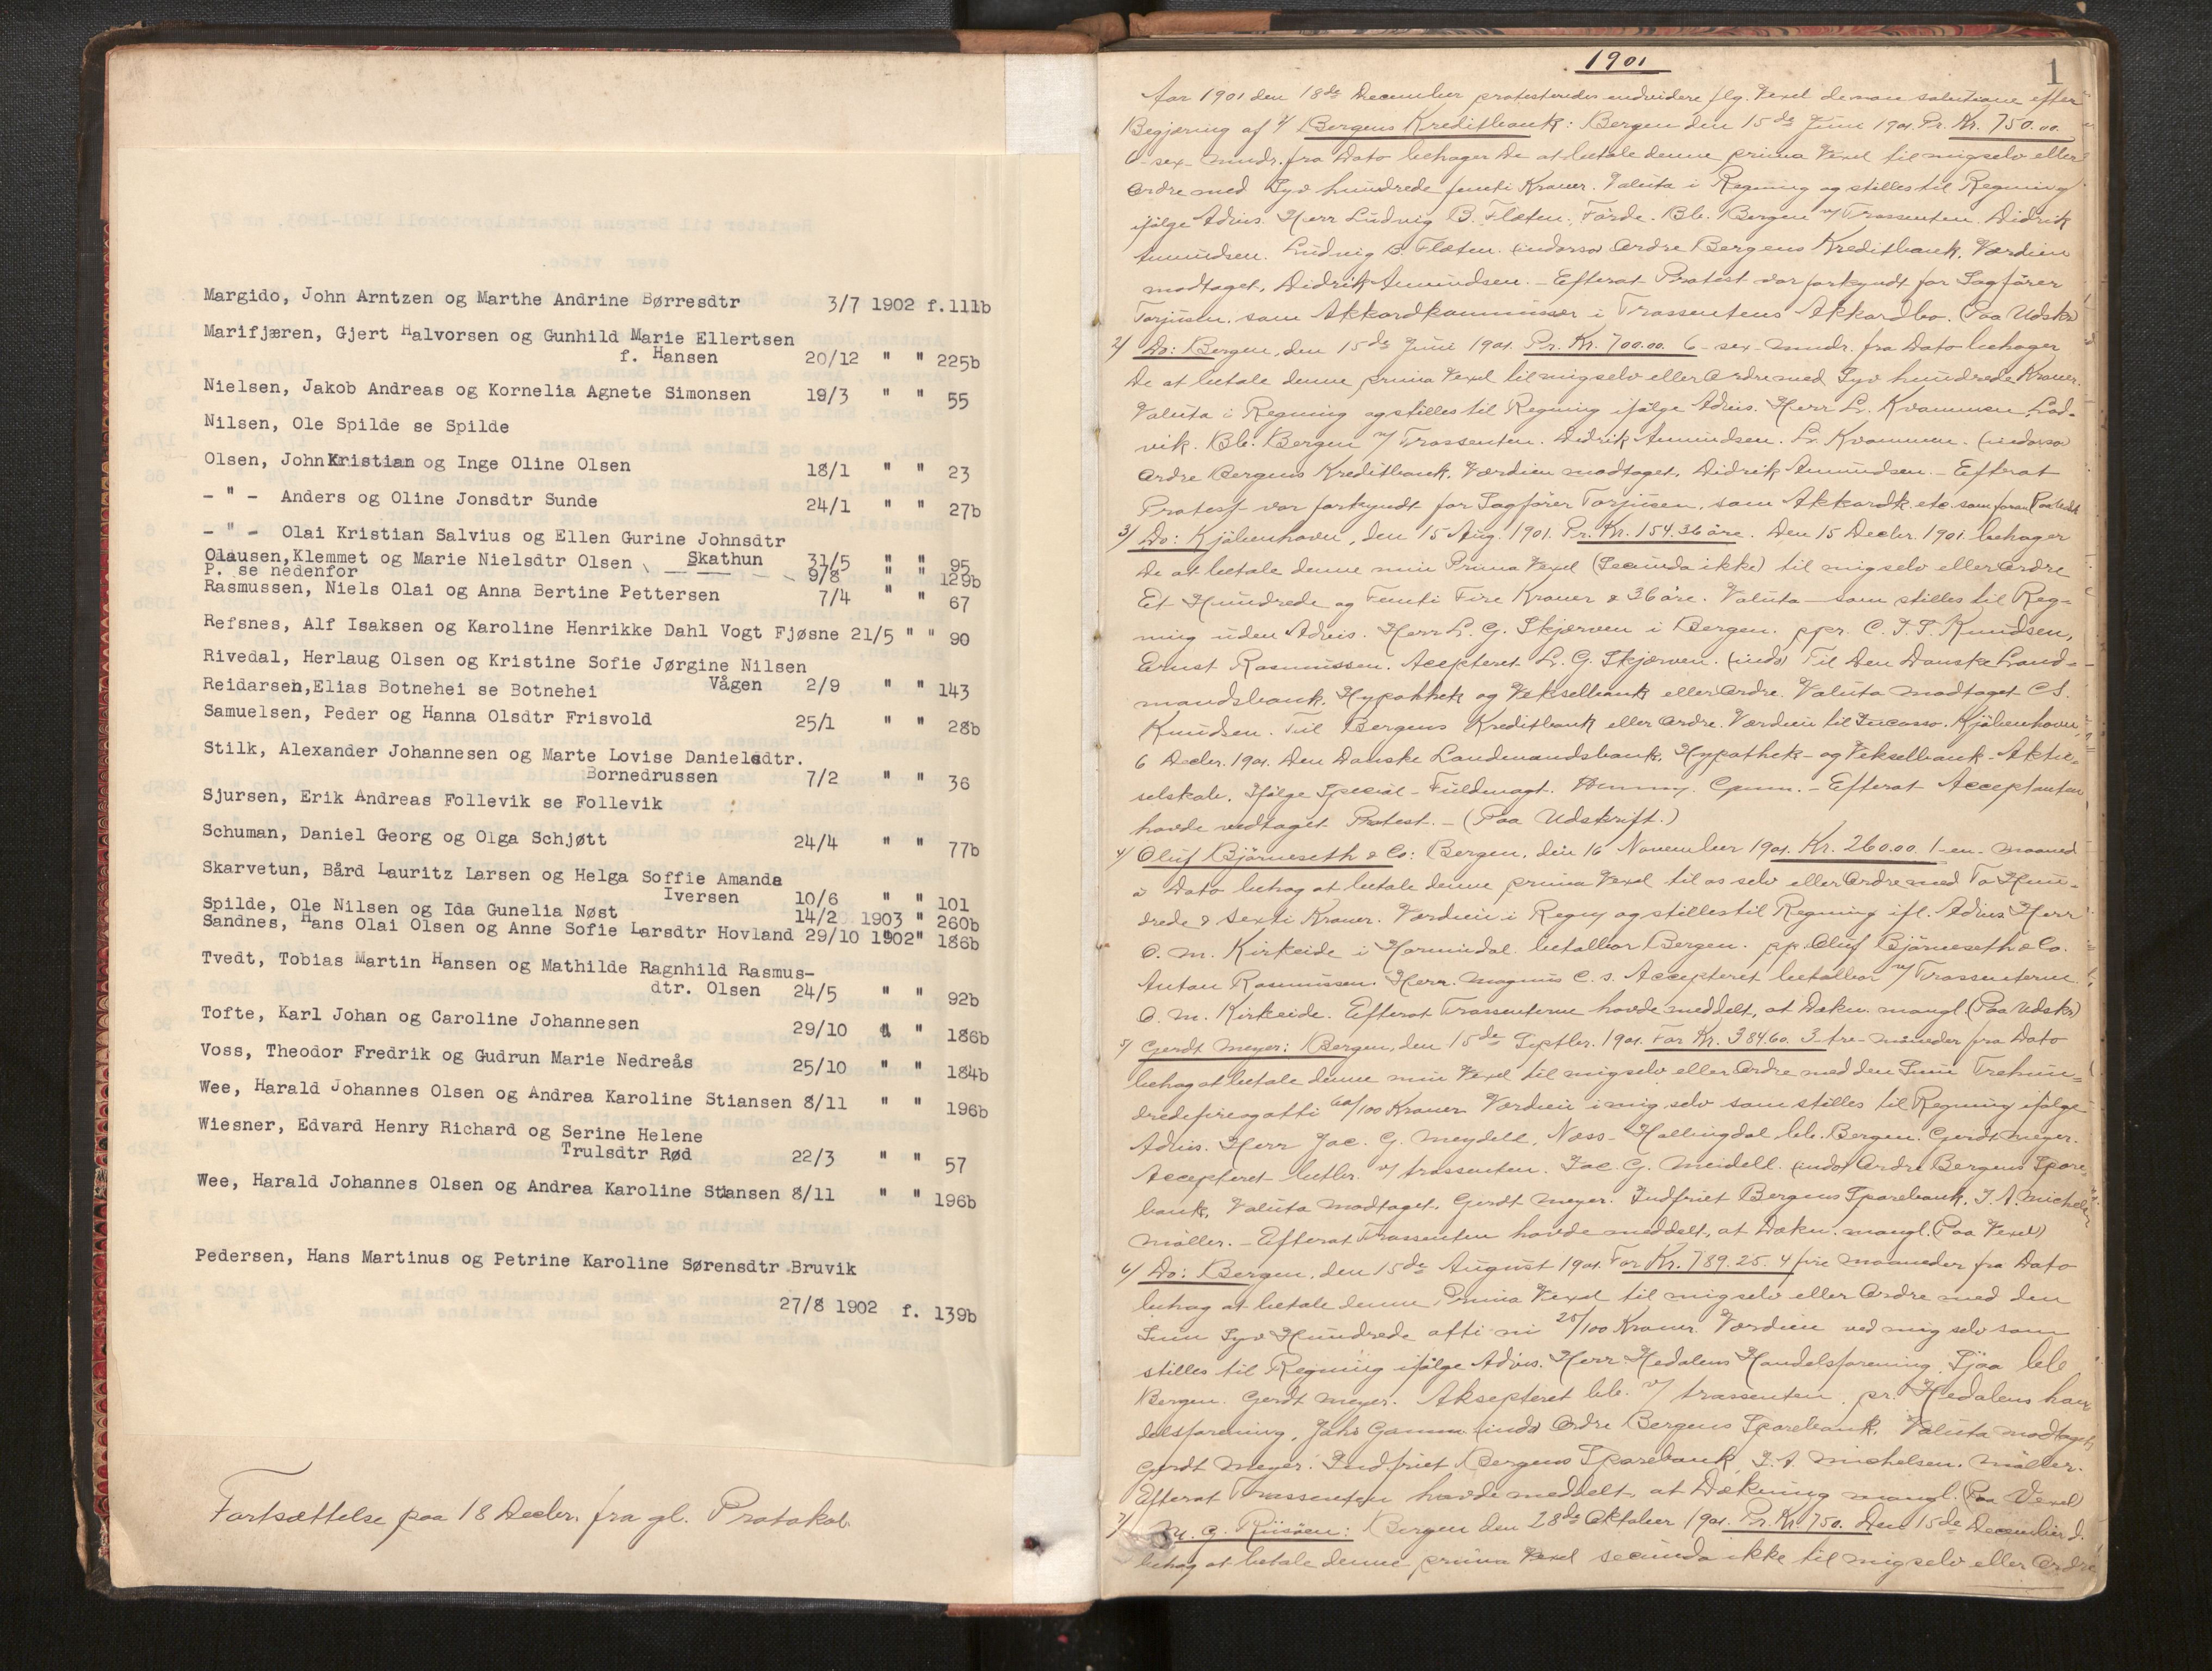 Margido, John Arntzen og Marthe Andrine Børresdtr 3/7 1902 f.111b
Marifjæren, Gjert Halvorsen og Gunhild Marie Ellertsen
f. Hansen 20/12 " " 225b
Nielsen, Jakob Andreas og Kornelia Agnete Simonsen 19/3 " " 55
Nilsen, Ole Spilde se Spilde
Olsen, John Kristian og Inge Oline Olsen 18/1 " " 23
- " - Anders og Oline Jonsdtr Sunde 24/1 " " 27b
- " - Olai Kristian Salvius og Ellen Gurine Johnsdtr
Skathun 31/5 " " 95
Olausen, Klemmet og Marie Nielsdtr Olsen 9/8 " " 129b
P. se nedenfor
Rasmussen, Niels Olai og Anna Bertine Pettersen 7/4 " " 67
Refsnes, Alf Isaksen og Karoline Henrikke Dahl Vogt Fjøsne 21/5 " " 90
Rivedal, Herlaug Olsen og Kristine Sofie Jørgine Nilsen
Vågen 2/9 " " 143
Reidarsen,Elias Botnehei se Botnehei
Samuelsen, Peder og Hanna Olsdtr Frisvold 25/1 " " 28b
Stilk, Alexander Johannesen og Marte Lovise Danielsdtr.
Bornedrussen 7/2 " " 36
Sjursen, Erik Andreas Follevik se Follevik
Schuman, Daniel Georg og Olga Schjøtt 24/4 " " 77b
Skarvetun, Bård Lauritz Larsen og Helga Soffie Amanda
Iversen 10/6 " " 101
Spilde, Ole Nilsen og Ida Gunelia Nøst 14/2 1903 " 260b
Sandnes, Hans Olai Olsen og Anne Sofie Larsdtr Hovland 29/10 1902 " 186b
Tvedt, Tobias Martin Hansen og Mathilde Ragnhild Rasmus-
dtr. Olsen 24/5 " " 92b
Tofte, Karl Johan og Caroline Johannesen 29/10 " " 186b
Voss, Theodor Fredrik og Gudrun Marie Nedreås 25/10 " " 184b
Wee, Harald Johannes Olsen og Andrea Karoline Stiansen 8/11 " " 196b
Wiesner, Edvard Henry Richard og Serine Helene
Trulsdtr Rød 22/3 " " 57
Wee, Harald Johannes Olsen og Andrea Karoline Stiansen 8/11 " " 196b
Pedersen, Hans Martinus og Petrine Karoline Sørensdtr Bruvik
27/8 1902 f. 139b
Fortsættelse paa 18 Decbr. fra gl. Protokol.
1901
1
Aar 1901 den 18de December protesteredes endvidere flg. Vexel de non solutione efter
Begjæring af 1/ Bergens Kreditbank: Bergen den 15de Juni 1901. Pr. Kr. 750.00.
6 - sex - mndr. fra Dato behager De at betale denne prima Vexel til mig selv eller
Ordre med Syv hundrede femti Kroner. Valuta i Regning og stilles til Regning
ifölge Advis. Herr Ludvig B. Flæten. Förde. Bb. Bergen v/ Trassenten. Didrik
Amundsen. Ludvig B. Flæten. (indorso) Ordre Bergens Kreditbank. Værdien
modtaget. Didrik Amundsen. - Efterat Protest var forkyndt for Sagförer
Torjusen, som Akkordkommissær i Trassentens Akkordbo. (Paa Udskr)
2/ Do: Bergen, den 15de Juni 1901. Pr. Kr. 700.00. 6 - sex - mndr. fra Dato behager
De at betale denne prima Vexel til mig selv eller Ordre med Syv hundrede Kroner.
Valuta i Regning og stilles til Regning ifölge Advis. Herr L. Kvammen Lad-
vik. Bb. Bergen v/ Trassenten. Didrik Amundsen. L. Kvammen. (indorso)
Ordre Bergens Kreditbank. Værdien modtaget. Didrik Amundsen. - Efterat
Protest var forkyndt for Sagförer Torjusen, som Akkordk. etc. som foran
3/ Do: Kjöbenhavn, den 15 Aug. 1901. Pr. Kr. 154.36 öre. Den 15 Decbr. 1901 behager
De at betale denne min Prima Vexel (Secunda ikke) til mig selv eller Ordre
Et Hundrede og Femti Fire Kroner & 36 öre. Valuta - som stilles til Reg-
ning uden Advis. Herr L. G. Skjærven i Bergen. ppr. C. I. T. Knudsen,
Ernst Rasmussen. Acepteret L. G. Skjærven. (indo) Til Den Danske Land-
mandsbank, Hypothek og Vekselbank eller Ordre. Valuta modtaget C S.
Knudsen. Til Bergens Kreditbank eller Ordre. Værdien til Incasso. Kjöbenhavn,
6 Decbr. 1901. Den Danske Landmandsbank, Hypothek- og Vekselbank- Aktie-
selskab. Ifölge Special-Fuldmagt. - Efterat Acceptanten
havde vedtaget Protest. - (Paa Udskrift.)
4/ Oluf Björneseth & Co: Bergen, den 16 November 1901. Kr. 260.00. 1 - en - maaned
a Dato behag at betale denne prima Vexel til os selv eller Ordre med To Hun-
drede & Sexti Kroner. Værdien i Regng og stilles til Regning ifl. Advis Herr
O. M. Kirkeide i Hornindal. betalbar Bergen. pp. Oluf Björneseth & Co.
Anton Rasmussen. Herr. Magnus C. S. Accepteret betalbar v/ Trassenterne
O. M. Kirkeide. Efterat Trassenterne havde meddelt, at Dækn. mangl. (Paa Udskr)
5/ Gerdt Meyer: Bergen, den 15de Septbr. 1901. For Kr. 384.60. 3 - tre - måneder fra Dato
behag at betale denne min Vexel til mig selv eller Ordre med den Sum Trehun-
dredefireogotti 60/100 Kroner Værdien i mig selv som stilles til Regning ifölge
Advis. Herr Jac. G. Meydell, Næss - Hallingdal bb. Bergen. Gerdt Meyer.
Accepteret betbr. v/ trassenten. Jac. G. Meidell. (indo) Ordre Bergens Spare-
bank. Valuta modtaget. Gerdt Meyer. Indfriet Bergens Sparebank. J. A. Michelsen
Möller. - Efterat Trassenten havde meddelt, at Dækn. mangl. (Paa Vexel)
6/ Do: Bergen, den 15de August 1901. For Kr. 789.25. 4 fire maaneder fra Dato
behag at betale denne Prima Vexel til mig selv eller Ordre med den
Sum Syv Hundrede otti ni 25/100 Kroner. Værdien ved mig selv som
stilles til Regning ifölge Advis. Herr Hedalens Handelsforening. Sjåa bb
Bergen. Gerdt Meyer. Aksepteret bb. v/ trassenten. pr. Hedalens han-
delsforening, Johs Gamme (indo) Ordre Bergens Sparebank. Valuta modtaget
Gerdt Meyer. Indfriet Bergens Sparebank J. A. Michelsen. Möller.
Efterat Trassenten havde meddelt at Dækning mangl. (Paa Vexel)
7/ M. G. Riisöen: Bergen den 28de Oktober 1901. Pr. Kr. 750. Den 15de December d.
behag at betale denne prima Vexel secunda ikke til mig selv eller Ordre